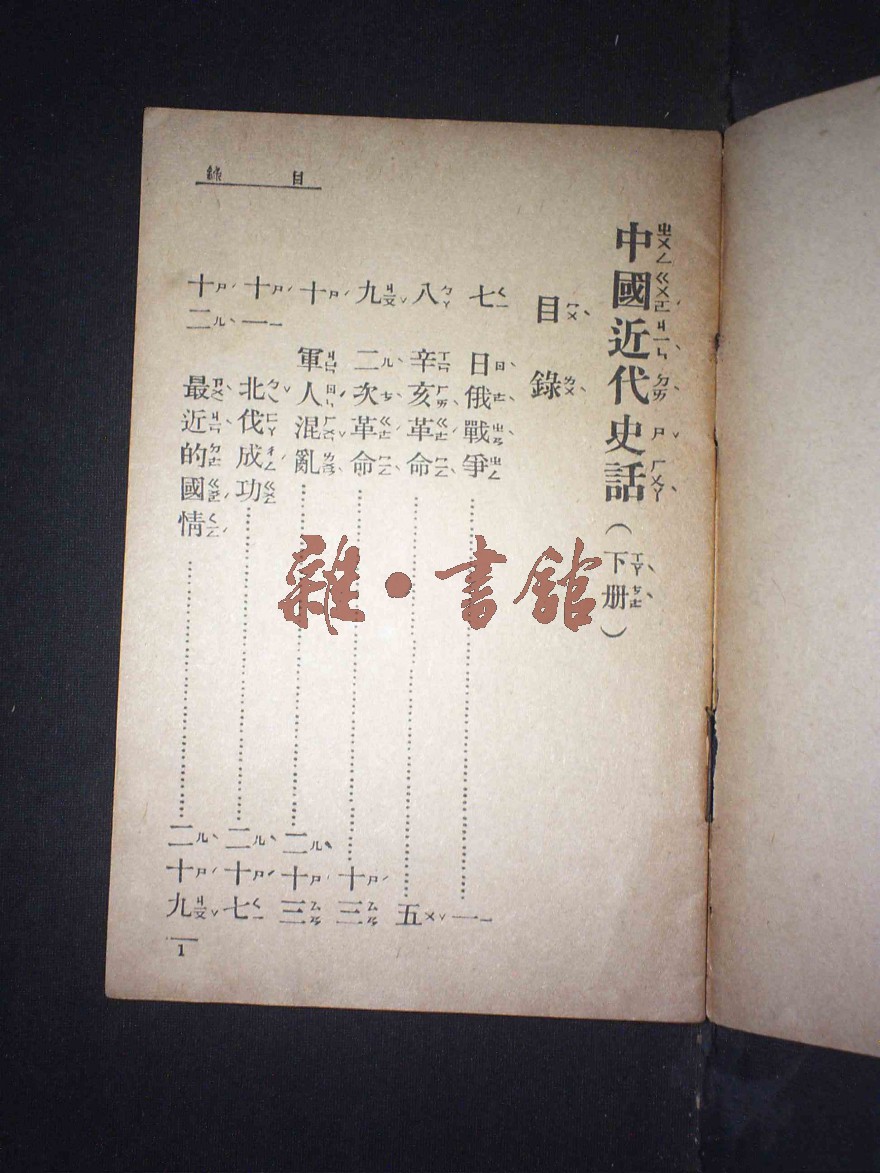 目錄
中國近代史話（下册）
ㄓㄨㄥ ㄍㄨㄛˊ ㄐㄧㄣˋ ㄉㄞˋ ㄕˇ ㄏㄨㄚˋ ㄒㄧㄚˋ ㄘㄜˋ
目錄
ㄇㄨˋ ㄌㄨˋ
七 日俄戰爭……一
八 辛亥革命……五
九 二次革命……十三
十 軍人混亂……二十三
十一 北伐成功……二十七
十二 最近的國情……二十九
1
雜·書館